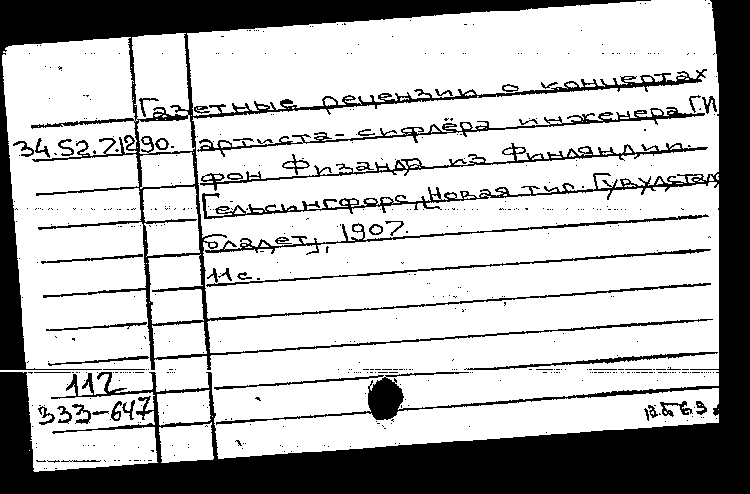 Газетные рецензии о концертах
34.52.7.1290. артиста-сифлёра инженера Г.И.
фон Физанда из Финляндии.
Гельсингфорс, "Новая тип. Гувудстадс
бладет", 1907.
11 с.
112
333-647